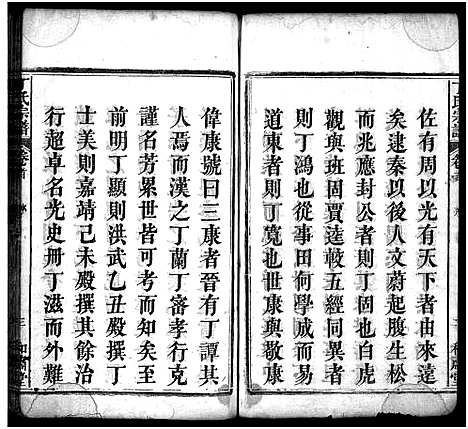 丁氏宗譜
卷首
佐有周以有天下者由來遠
矣逮秦以後人文蔚起腹松
而兆應封公者丁固也東
觀與班固賈逵較五經同異
則丁鴻也從事田何學成而易
道東者丁寬也世康與
偉康號曰三康者晉有丁潭
人焉而漢之丁蘭丁審孝行克
謹名芳累世皆可考而知矣
前明丁顯則洪武乙丑殿撰丁
士美則嘉靖己未殿撰其餘治
行超卓名光史冊丁滋而外難
丁氏宗譜
卷首